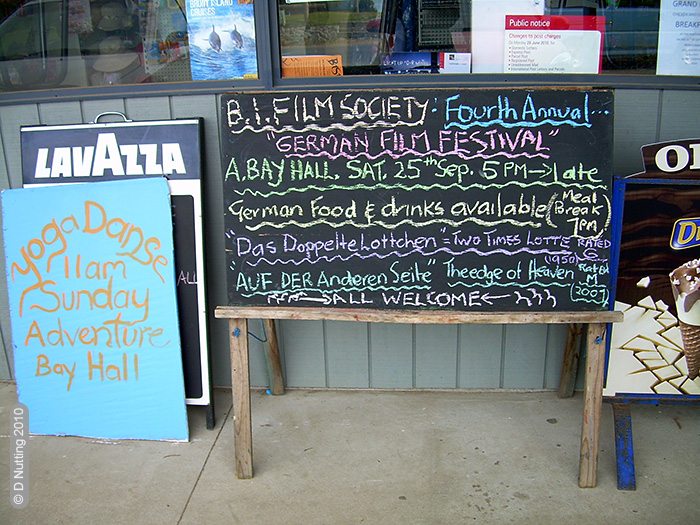 BRUNY ISLAND
CRUISES
PUBLIC NOTICE
B.I. FILM SOCIETY: Fourth Annual...
"GERMAN FILM FESTIVAL"
A.BAY HALL. SAT. 25th Sep. 5PM→late
German Food & drinks available (Meal Break 7PM)
"Das Doppelte Lottchen" = TWO TIMES LOTTE RATED G
1950
"AUF DER Anderen Seite" The edge of Heaven Rated M
(2007)
→ALL WELCOME←
LAVAZZA
Yoga Danse
11am
Sunday
Adventure
Bay Hall
ALL
D
© D Nutting 2010